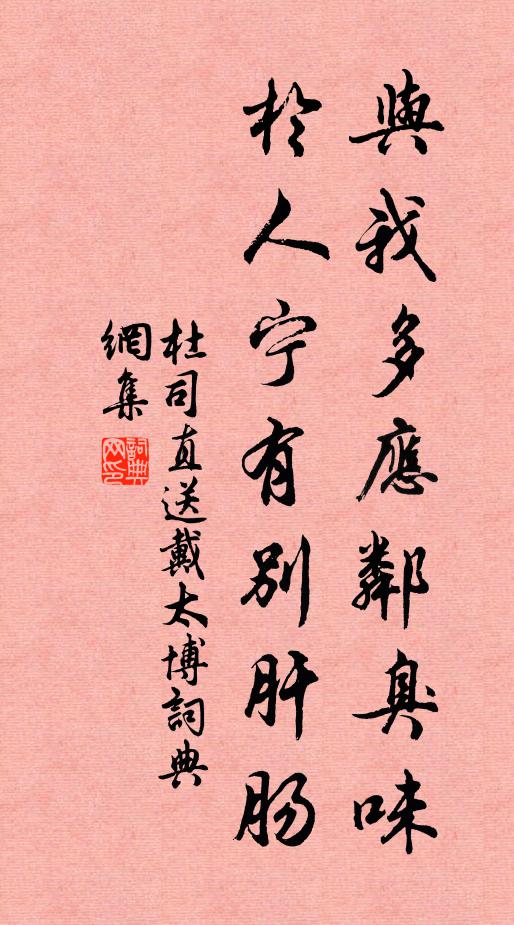 與我多應鄰臭味
於人宁有別肝肠
杜司直送戴太博詞典
網集
詞典网印